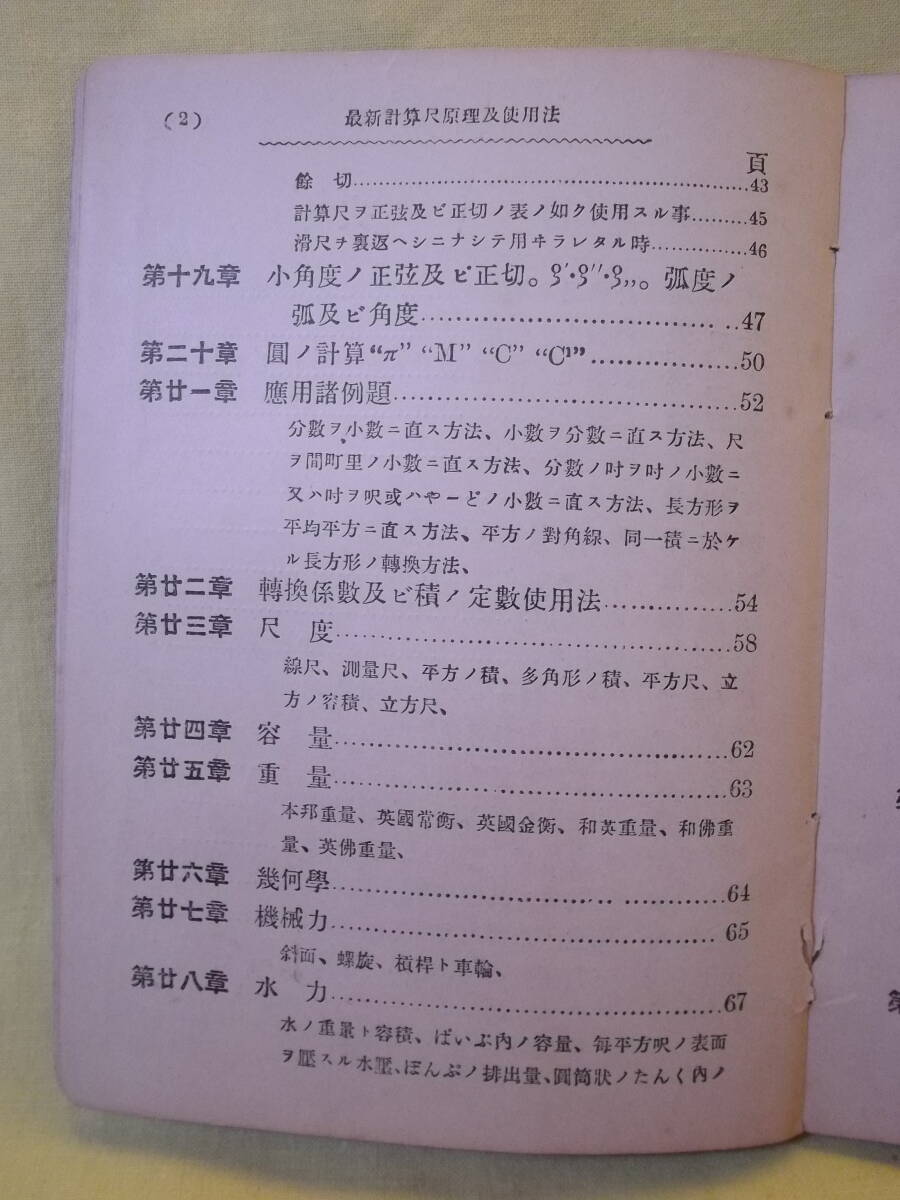 (2) 最新計算尺原理及使用法
頁
餘切……43
計算尺ヲ正弦及ビ正切ノ表ノ如ク使用スル事……45
滑尺チ裏返ヘシニナシテ用ヰラレタル時……46
第十九章 小角度ノ正弦及ビ正切。ϱ′·ϱ″·ϱ,,。弧度ノ
弧及ビ角度……47
第二十章 圓ノ計算“π” “M” “C” “C¹”……50
第廿一章 應用諸例題……52
分數ヲ小數ニ直ス方法、小數ヲ分數ニ直ス方法、尺
ヲ間町里ノ小數ニ直ス方法、分數ノ吋ヲ吋ノ小數ニ
又ハ吋ヲ呎或ハやーどノ小數ニ直ス方法、長方形ヲ
平均平方ニ直ス方法、平方ノ對角線、同一積ニ於ケ
ル長方形ノ轉換方法、
第廿二章 轉換係數及ビ積ノ定數使用法……54
第廿三章 尺度……58
線尺、測量尺、平方ノ積、多角形ノ積、平方尺、立
方ノ容積、立方尺、
第廿四章 容量……62
第廿五章 重量……63
本邦重量、英國常衡、英國金衡、和英重量、和佛重
量、英佛重量、
第廿六章 幾何學……64
第廿七章 機械力……65
斜面、螺旋、槓桿ト車輪、
第廿八章 水力……67
水ノ重量ト容積、ぱいぷ內ノ容量、每平方呎ノ表面
ヲ壓スル水壓、ぽんぷノ排出量、圓筒狀ノたんく內ノ
第
第